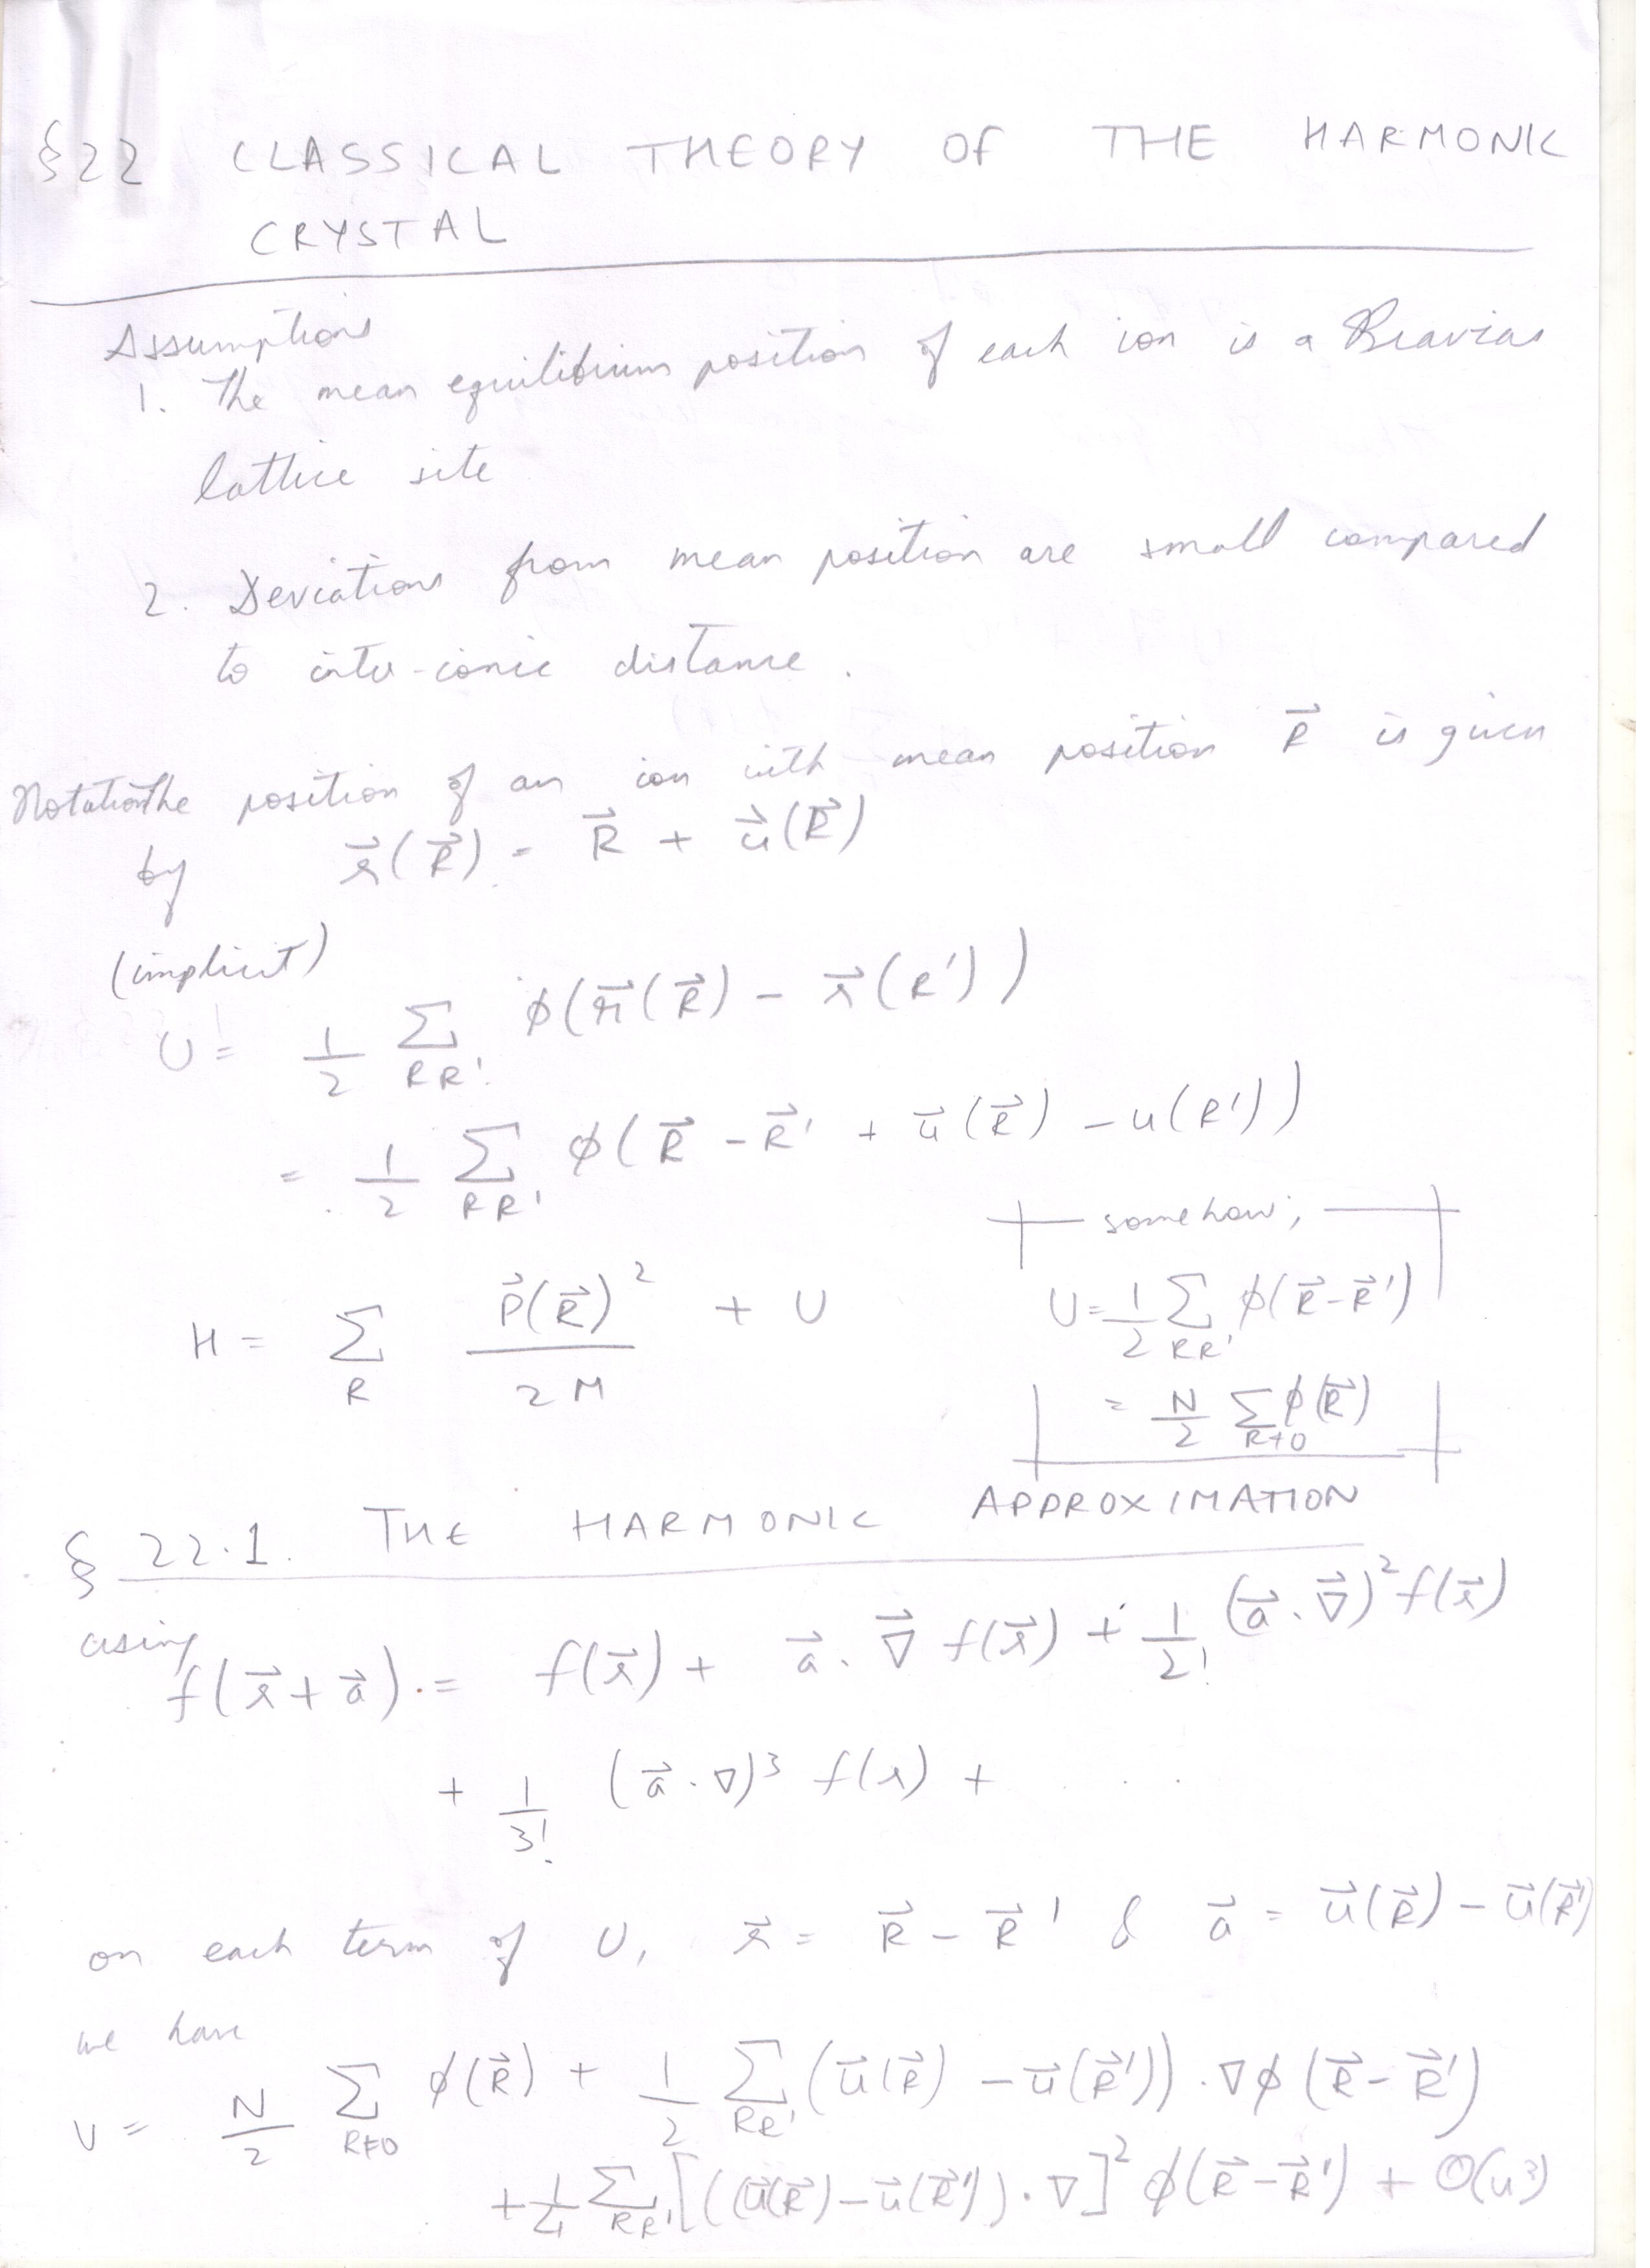 §22 CLASSICAL THEORY OF THE HARMONIC
CRYSTAL
Assumptions
1. The mean equilibrium position of each ion is a Bravias
lattice site
2. Deviations from mean position are small compared
to inter-ionic distance.
Notation The position of an ion with mean position R⃗ is given
by r⃗(R⃗) = R⃗ + u⃗(R⃗)
(implicit)
U = 1/2 Σ_{RR'} ϕ(r⃗(R⃗) - r⃗(R'))
= 1/2 Σ_{RR'} ϕ(R⃗ - R⃗' + u⃗(R⃗) - u(R'))
H = Σ_R P⃗(R⃗)²/2M + U
somehow,
U = 1/2 Σ_{RR'} ϕ(R⃗-R⃗')
= N/2 Σ_{R≠0} ϕ(R⃗)
§ 22.1. THE HARMONIC APPROXIMATION
using
f(r⃗ + a⃗) = f(r⃗) + a⃗ . ∇⃗ f(r⃗) + 1/2! (a⃗ . ∇⃗)² f(r⃗)
+ 1/3! (a⃗ . ∇)³ f(r) + . . .
on each term of U, r⃗ = R⃗ - R⃗' & a⃗ = u⃗(R⃗) - u⃗(R⃗')
we have
U = N/2 Σ_{R≠0} ϕ(R⃗) + 1/2 Σ_{RR'} (u⃗(R⃗) - u⃗(R⃗')) . ∇ϕ (R⃗ - R⃗')
+ 1/4 Σ_{RR'} [((u⃗(R⃗) - u⃗(R⃗')) . ∇]² ϕ(R⃗ - R⃗') + O(u³)